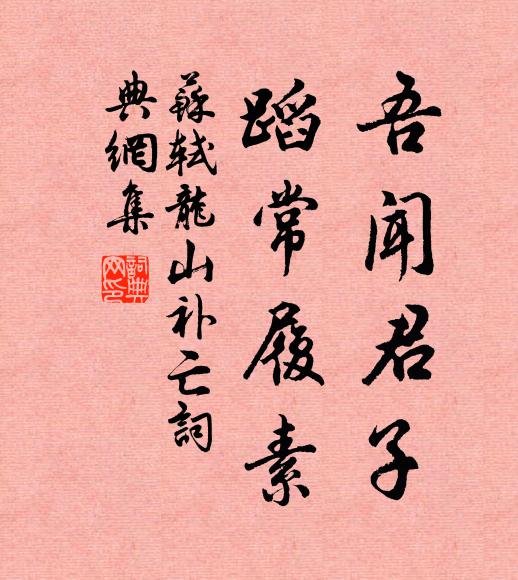 吾聞君子
蹈常履素
蘇軾龍山补亡詞
典網集
詞典網印